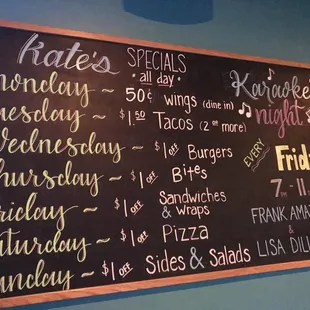 Kate's SPECIALS
all day
Monday ~ 50¢ wings (dine in)
Tuesday ~ $1.50 Tacos (2 or more)
Wednesday ~ $1 OFF Burgers
Thursday ~ $1 OFF Bites
Friday ~ $1 OFF Sandwiches & Wraps
Saturday ~ $1 OFF Pizza
Sunday ~ $1 OFF Sides & Salads
Karaoke
night
EVERY
Frid
7 - 11
FRANK AMA
&
LISA DILL